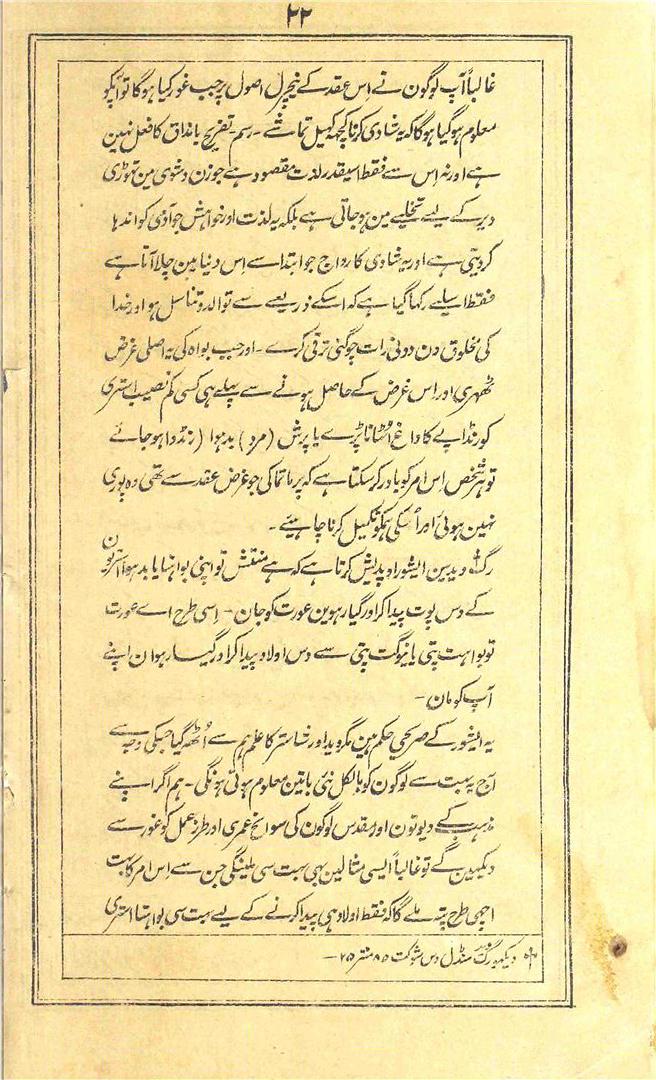 ۲۲
غالباً آپ لوگون نے اِس عقد کے نیچرل اصول پر جب غور کیا ہوگا تو آپکو
معلوم ہوگیا ہوگا کہ یہ شادی کرنا کچھہ کہیل تماشے ۔ رسم ۔ تفریح یا مذاق کا فعل نہین
ہے اور نہ اِس سے فقط اسیقدر لذت مقصود ہے جو زن و شوی مین تھوڑی
دیر کے لیے تخلیے مین ہو جاتی ہے بلکہ یہ لذت اور خواہش جو آدمی کو اندہا
کر دیتی ہے اور یہ شادی کا رواج جو ابتدا سے اِس دنیا مین چلا آتا ہے
فقط اسلیے رکہا گیا ہے کہ اسکے ذریعے سے توالد و تناسل ہو اور خدا
کی مخلوق دن دونی رات چوگنی ترقی کرے ۔ اور جب بواہ کی یہ اصلی غرض
ٹھہری اور اِس غرض کے حاصل ہونے سے پہلے ہی کسی کم نصیب استری
کو رنڈاپے کا داغ اُٹھانا پڑے یا پرش (مرد) بدہوا (رنڈوا) ہو جائے
تو ہر شخص اِس امر کو باور کر سکتا ہے کہ پرماتما کی جو غرض عقد سے تھی وہ پوری
نہین ہوئی اور اُسکی ہمکو تکمیل کرنا چاہیئے ۔
رگ وید مین ایشور اوپدیش کرتا ہے کہ ہے منش تو اپنی بواہتا یا بدہوا استریون
کے دس پوت پیدا کر اور گیارہوین عورت کو جان ۔ اِسی طرح اے عورت
تو بواہت پتی یا نیوگت پتی سے دس اولاد پیدا کر اور گیارہوان اپنے
آپ کو مان ۔
یہ ایشور کے صریحی حکم ہین مگر وید اور شاستر کا علم ہم سے اُٹھہ گیا جسکی وجہ سے
آج یہ بہت سے لوگون کو بالکل نئی باتین معلوم ہوتی ہونگی ۔ ہم اگر اپنے
مذہب کے دیوتون اور مقدس لوگون کی سوانح عمری اور طرز عمل کو غور سے
دیکہین گے تو غالباً ایسی مثالین بہی بہت سی ملینگی جن سے اِس امر کا بہت
اچھی طرح پتہ ملے گا کہ فقط اولاد ہی پیدا کرنے کے لیے بہت سی بواہتا استری
دیکہو رگ وید منڈل دس سوکت ۸۵ منتر ۴۵ ۔